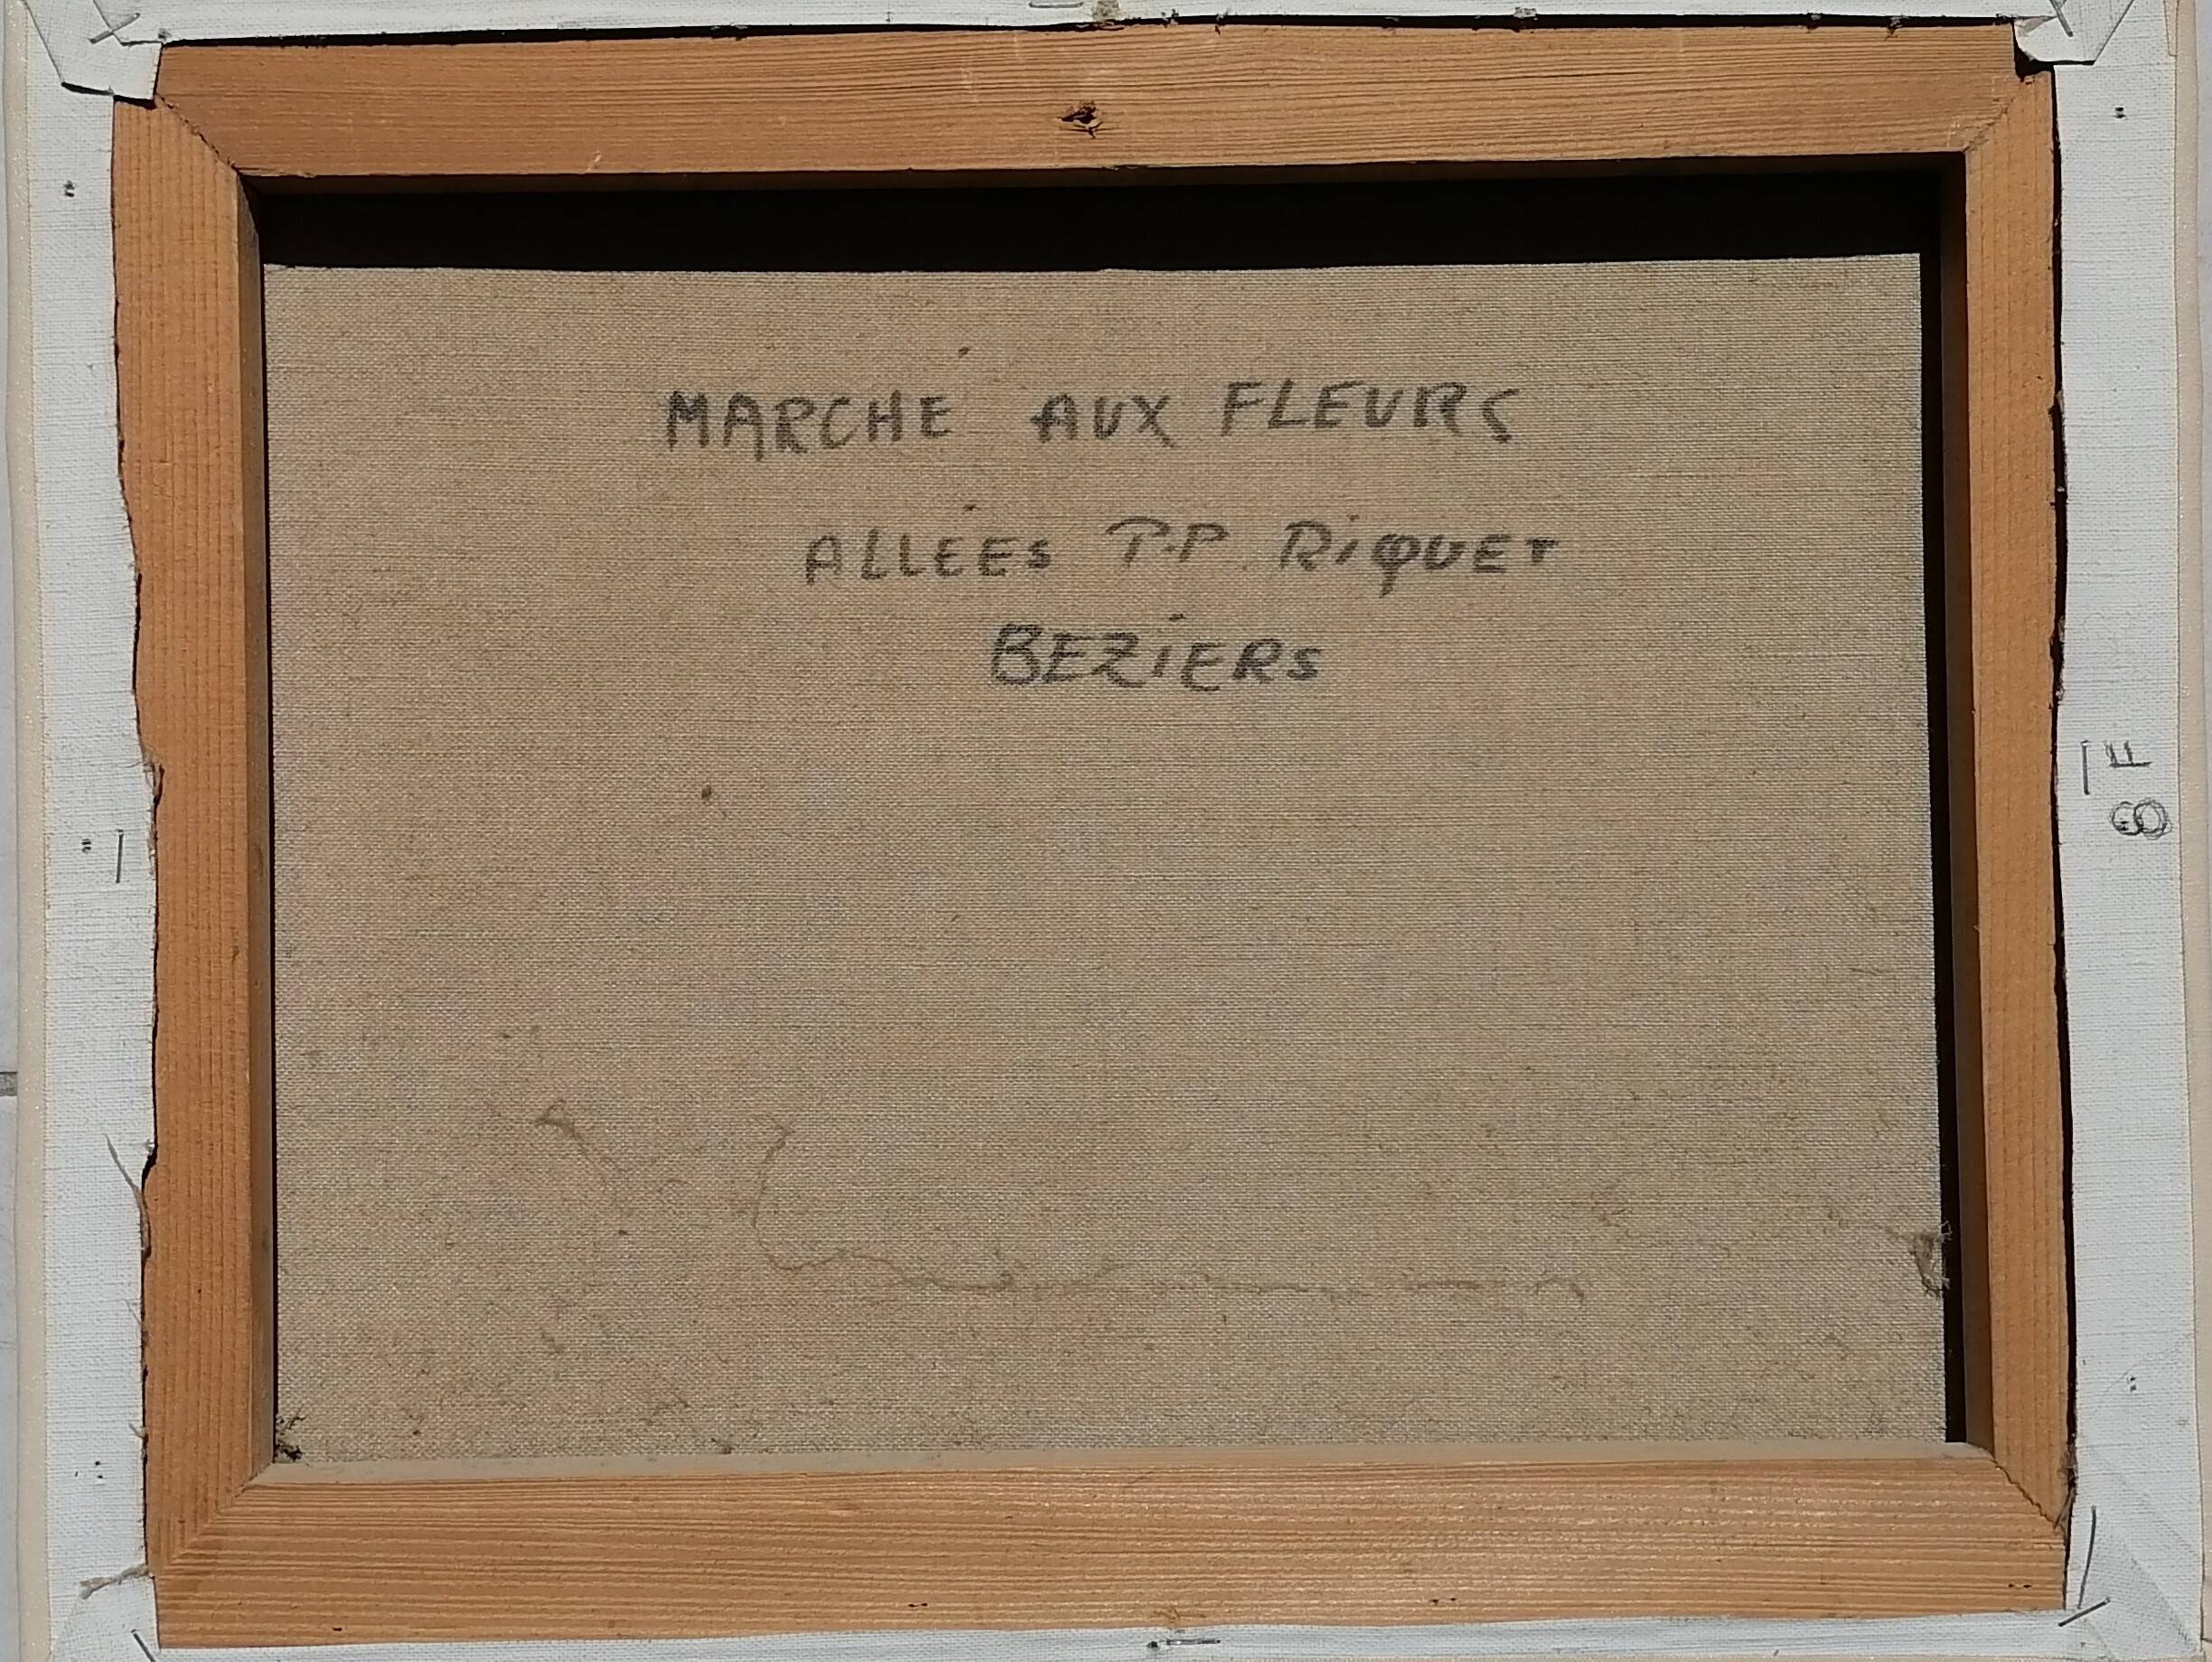 MARCHÉ AUX FLEURS
ALLÉES P.P. RiQUET
BÉZiERS
8F